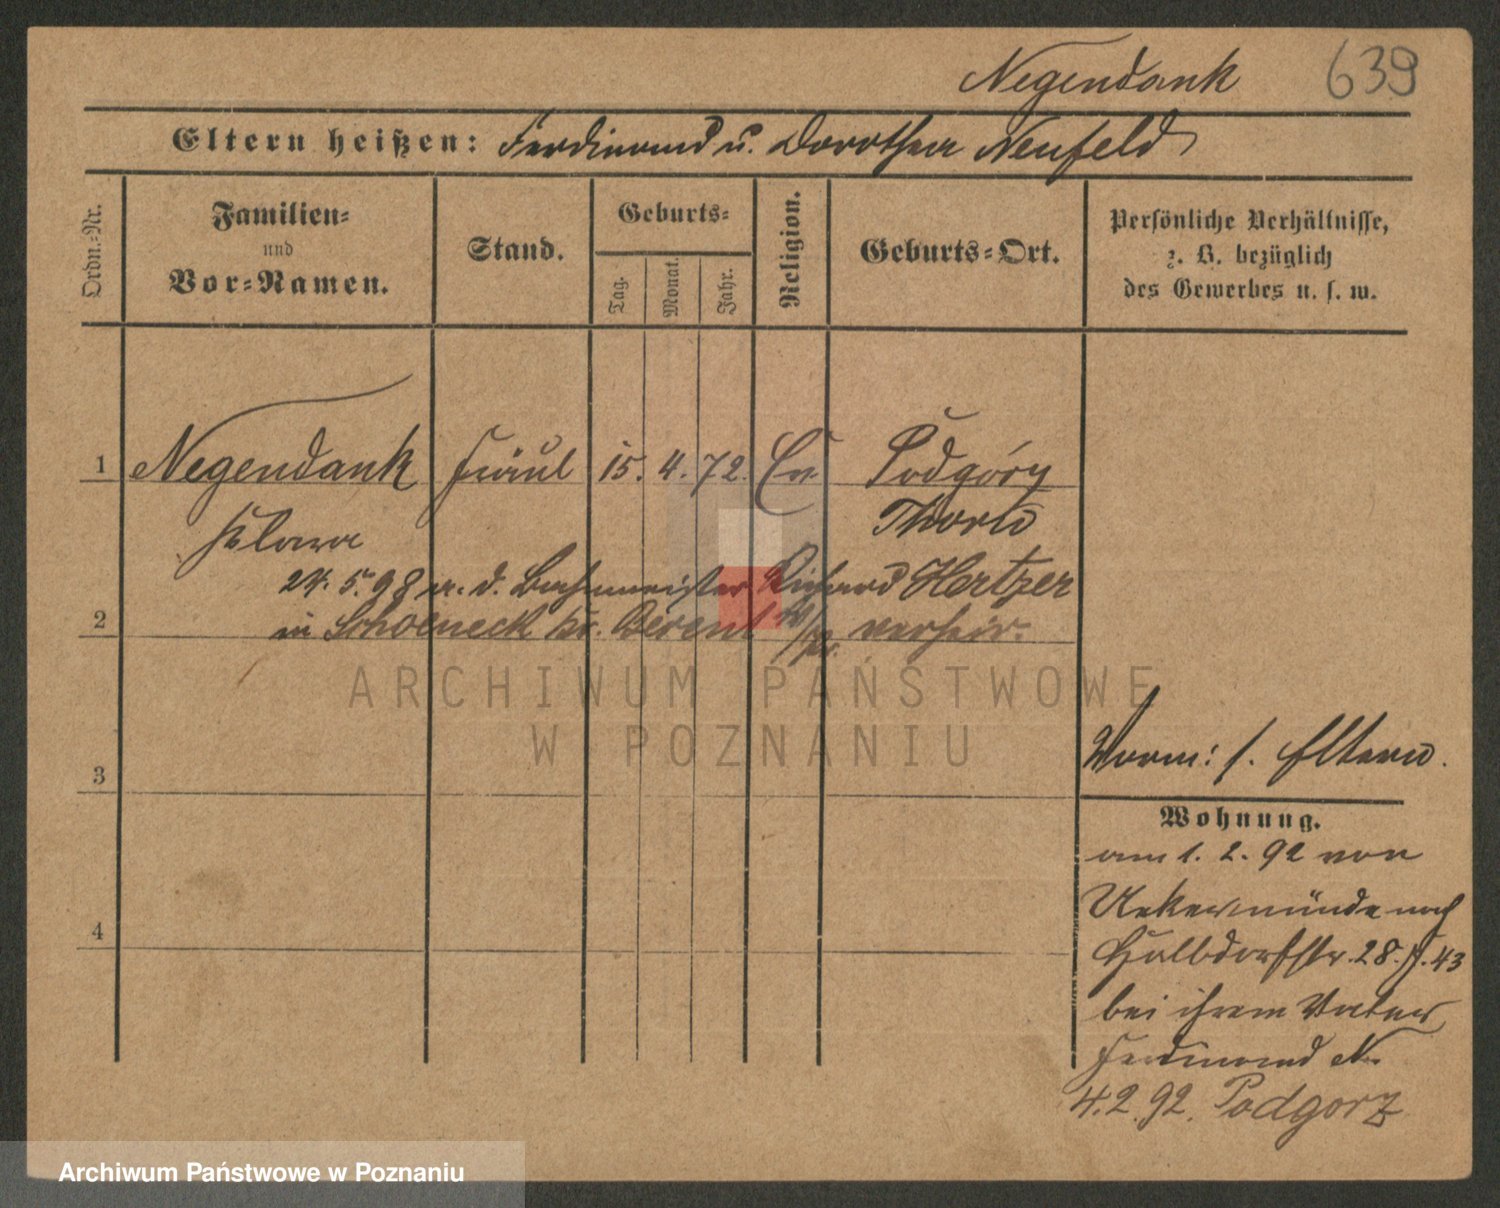 Negendank 639
Eltern heißen: Ferdinand u. Dorothea Neufeld
Ordn.-Nr.
Familien-
und
Vor-Namen.
Stand.
Geburts-
Tag.
Monat.
Jahr.
Religion.
Geburts-Ort.
Persönliche Verhältnisse,
z. B. bezüglich
des Gewerbes u. s. w.
1 Negendank Fräul 15. 4. 72. Ev Podgórz
Klara Thorn
24. 5. 98 m. d. Richard Hertzer
2 in Schoeneck Kr. Berent verheir.
ARCHIWUM PAŃSTWOWE
W POZNANIU
3
Vorm: s. Eltern.
Wohnung.
am 1. 2. 92 von
Uekermünde nach
Halbdorfstr. 28. 43
bei ihrem Vater
Ferdinand N.
4
4. 2. 92. Podgorz
Archiwum Państwowe w Poznaniu